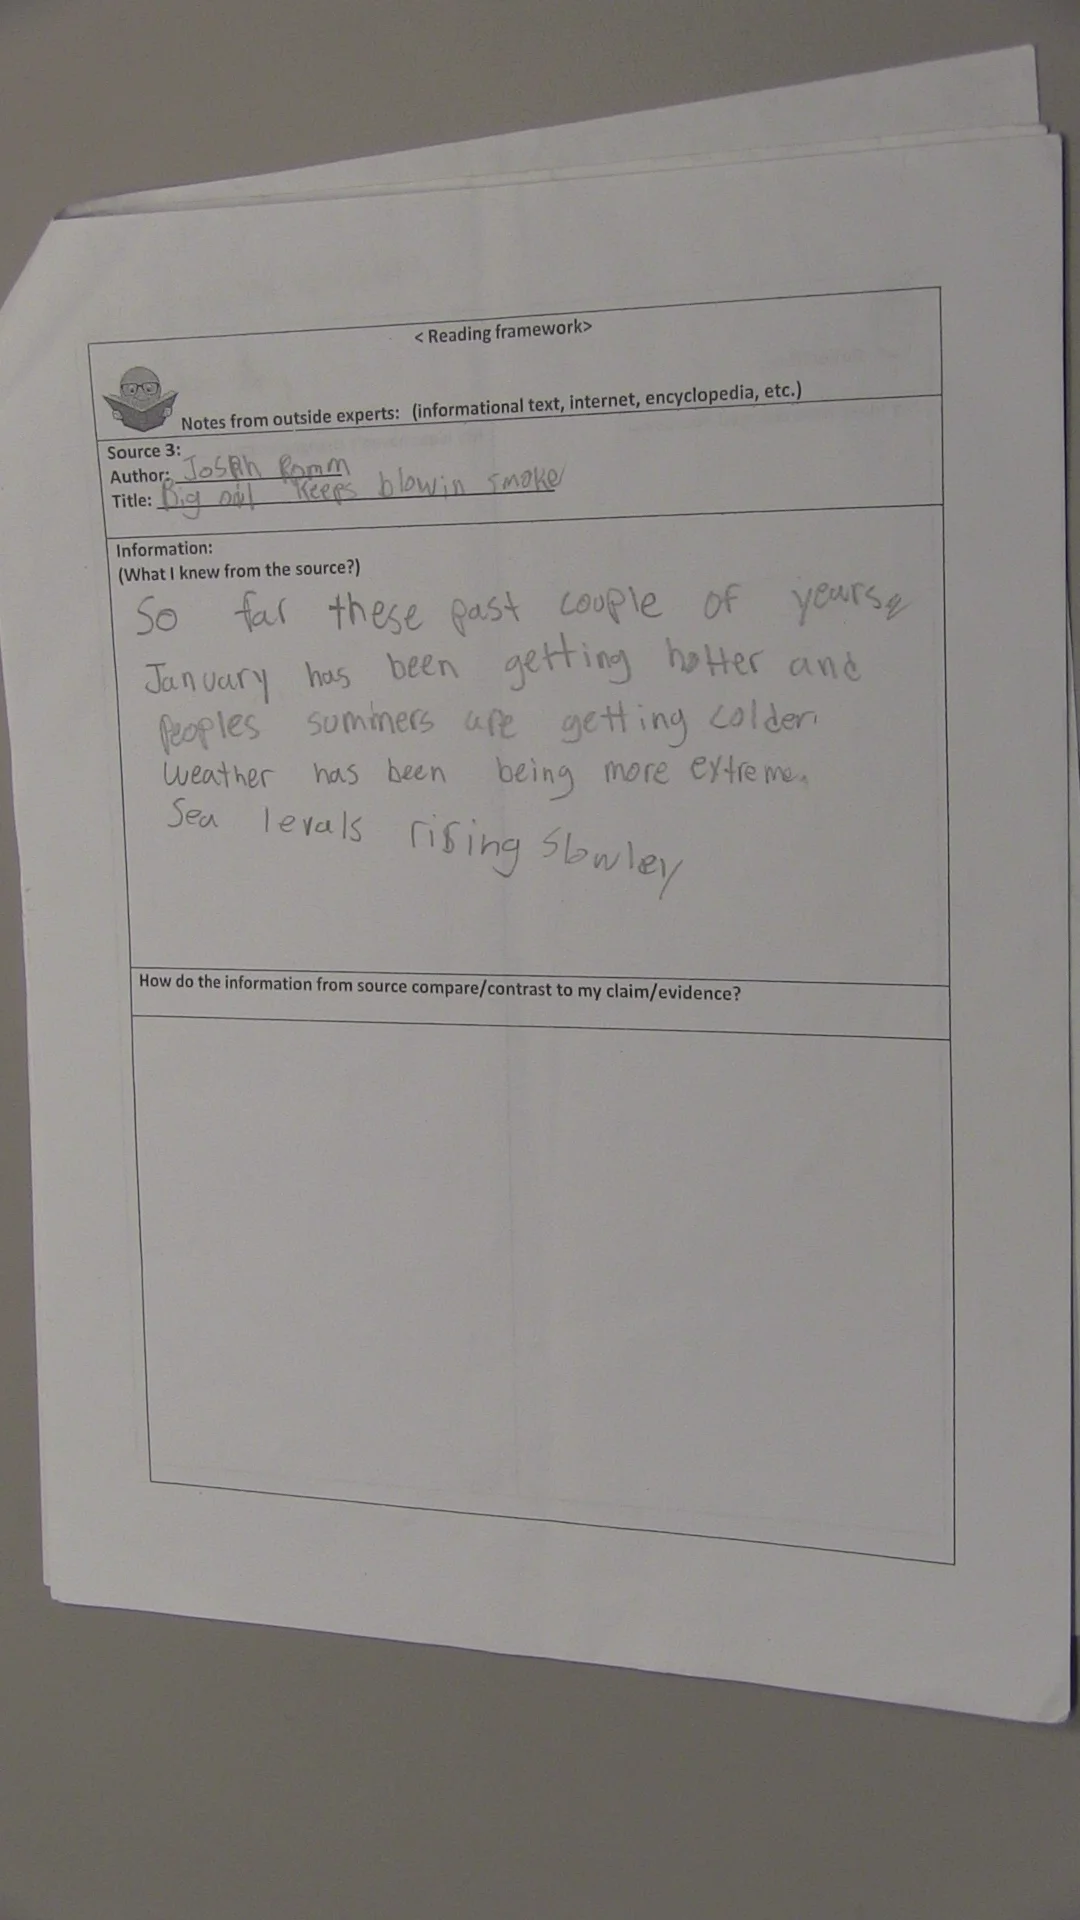 < Reading framework>
Notes from outside experts: (informational text, internet, encyclopedia, etc.)
Source 3:
Author: Josph Romm
Title: Big oil Keeps blowin smoke
Information:
(What I knew from the source?)
So far these past couple of years
January has been getting hotter and
Peoples summers are getting colder.
Weather has been being more extreme.
Sea levals rising Slowley
How do the information from source compare/contrast to my claim/evidence?